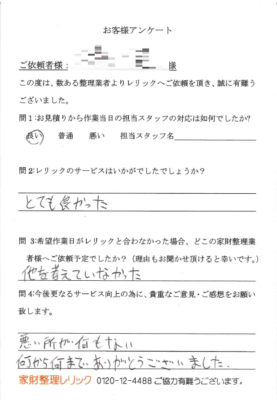 お客様アンケート
ご依頼者様： 様
この度は、数ある整理業者よりレリックへご依頼を頂き、誠に有難う
ございました。
問1:お見積りから作業当日の担当スタッフの対応は如何でしたか?
良い 普通 悪い 担当スタッフ名
問2:レリックのサービスはいかがでしたでしょうか？
とても良かった
問3:希望作業日がレリックと合わなかった場合、どこの家財整理業
者様へご依頼予定でしたか？（理由もお聞かせ頂けると幸いです。）
他を考えていなかった
問4:今後更なるサービス向上の為に、貴重なご意見・ご感想をお願い
致します。
悪い所が何もない
何から何まで ありがとうございました.
家財整理レリック 0120-12-4488 ご協力有難うございます。